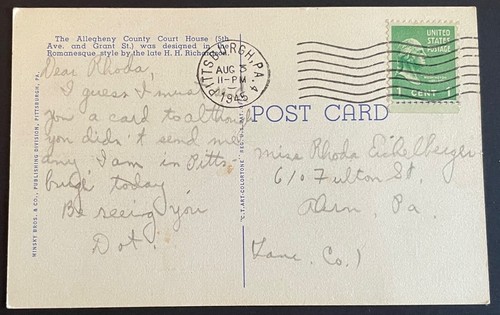 The Allegheny County Court House (5th
Ave. and Grant St.) was designed in the
Romanesque style by the late H. H. Richardson.
Dear Rhoda,
I guess I must
you a card to although
you didn't send me
any I am in Pitts-
burge today.
Be seeing you
Dot.
MINSKY BROS. & CO., PUBLISHING DIVISION, PITTSBURGH, PA.
"C.T. ART-COLORTONE"
PITTSBURGH, PA. 4
AUG 5
11-PM
1945
UNITED
STATES
POSTAGE
1 CENT 1
POST CARD
Miss Rhoda Eichelberger
610 Fulton St.
Pa.
Lanc. Co.)